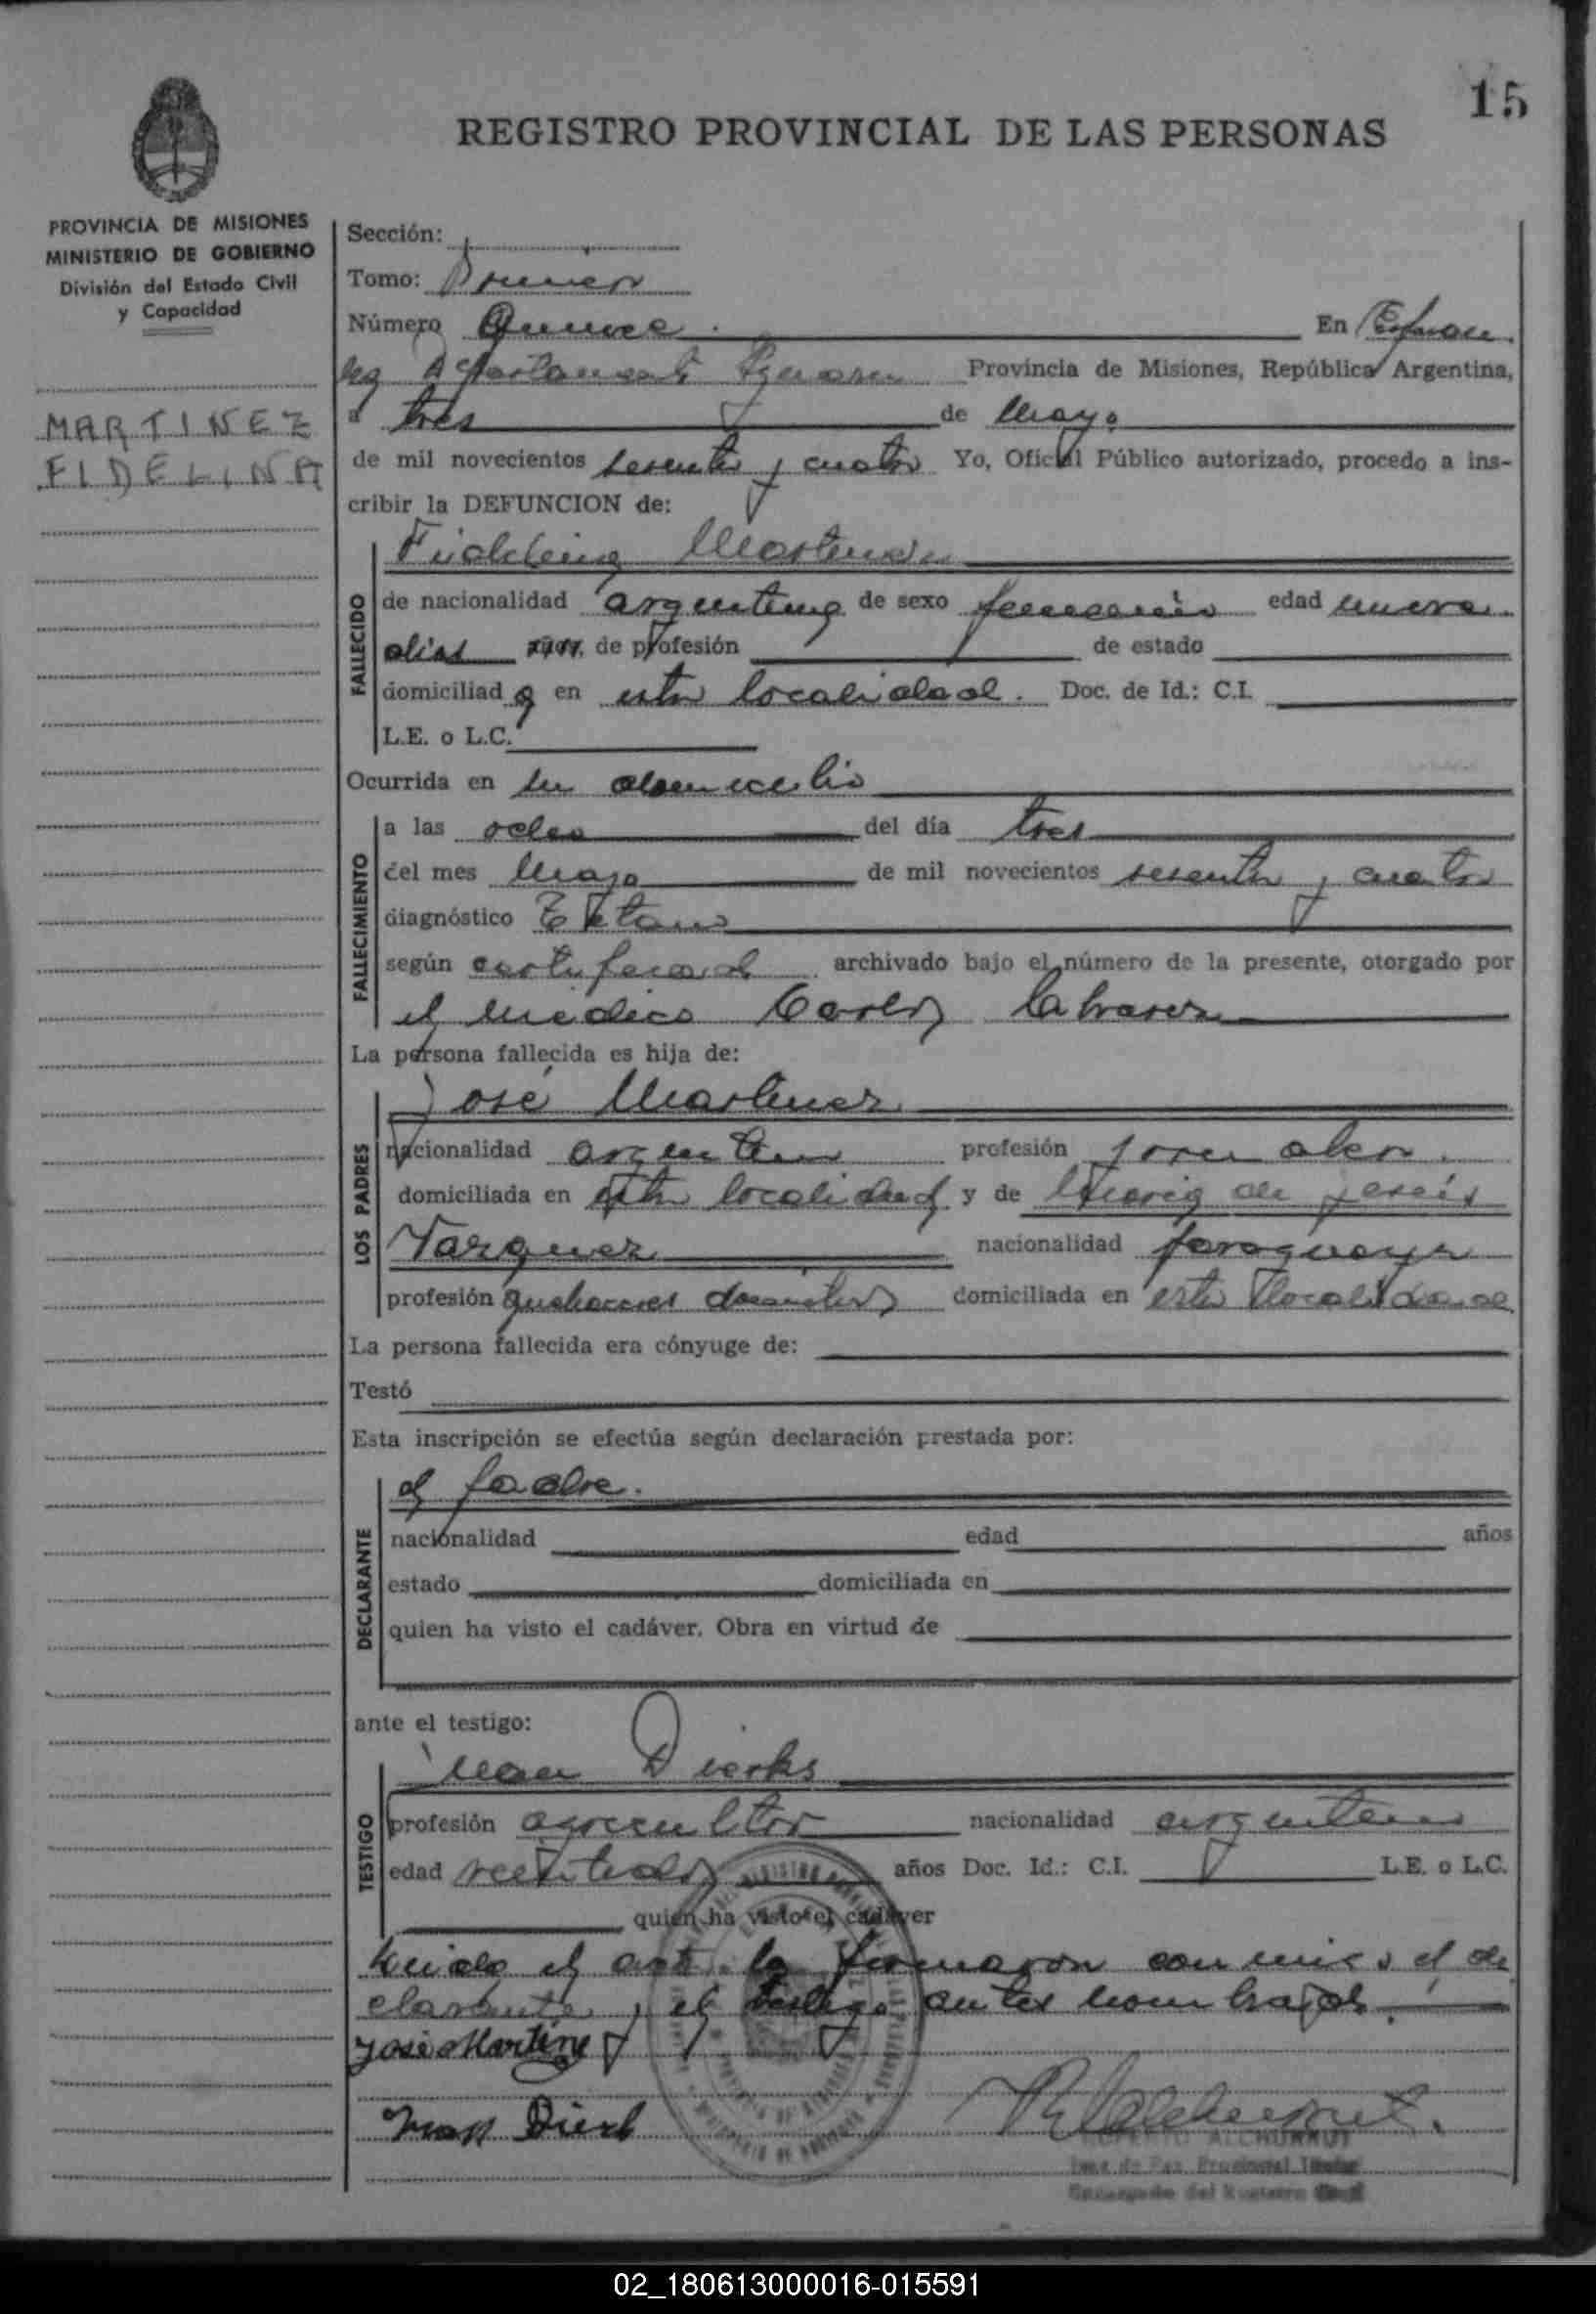 15
REGISTRO PROVINCIAL DE LAS PERSONAS
PROVINCIA DE MISIONES
MINISTERIO DE GOBIERNO
División del Estado Civil
y Capacidad
MARTINEZ
FIDELINA
Sección:
Tomo: Primero
Número Quince. En Esperan
za Departamento Iguazu Provincia de Misiones, República Argentina,
a tres de Mayo
de mil novecientos sesenta y cuatro Yo, Oficial Público autorizado, procedo a ins-
cribir la DEFUNCION de:
Fidelina Martinez
FALLECIDO
de nacionalidad argentina de sexo femenino edad nueve
dias de profesión de estado
domiciliada en esta localidad. Doc. de Id.: C.I.
L.E. o L.C.
Ocurrida en su domicilio
FALLECIMIENTO
a las ocho del día tres
del mes Mayo de mil novecientos sesenta y cuatro
diagnóstico Tetano
según certificado archivado bajo el número de la presente, otorgado por
el medico Carlos
La persona fallecida es hija de:
LOS PADRES
José Martinez
nacionalidad argentino profesión jornalero.
domiciliada en esta localidad y de Maria de Jesús
Vazquez nacionalidad paraguaya
profesión quehaceres domésticos domiciliada en esta localidad
La persona fallecida era cónyuge de:
Testó
Esta inscripción se efectúa según declaración prestada por:
DECLARANTE
el padre.
nacionalidad edad años
estado domiciliada en
quien ha visto el cadáver. Obra en virtud de
ante el testigo:
TESTIGO
Juan Dierks
profesión agricultor nacionalidad argentino
edad años Doc. Id.: C.I. L.E. o L.C.
quien ha visto el cadáver
Leida el acta la firmaron conmigo el de
clarante y el testigo antes nombrados.
José Martinez
Juan Dierk
ALCHURRUT
Juez de Paz Provincial Titular
Encargado del Registro Civil
02_180613000016-015591